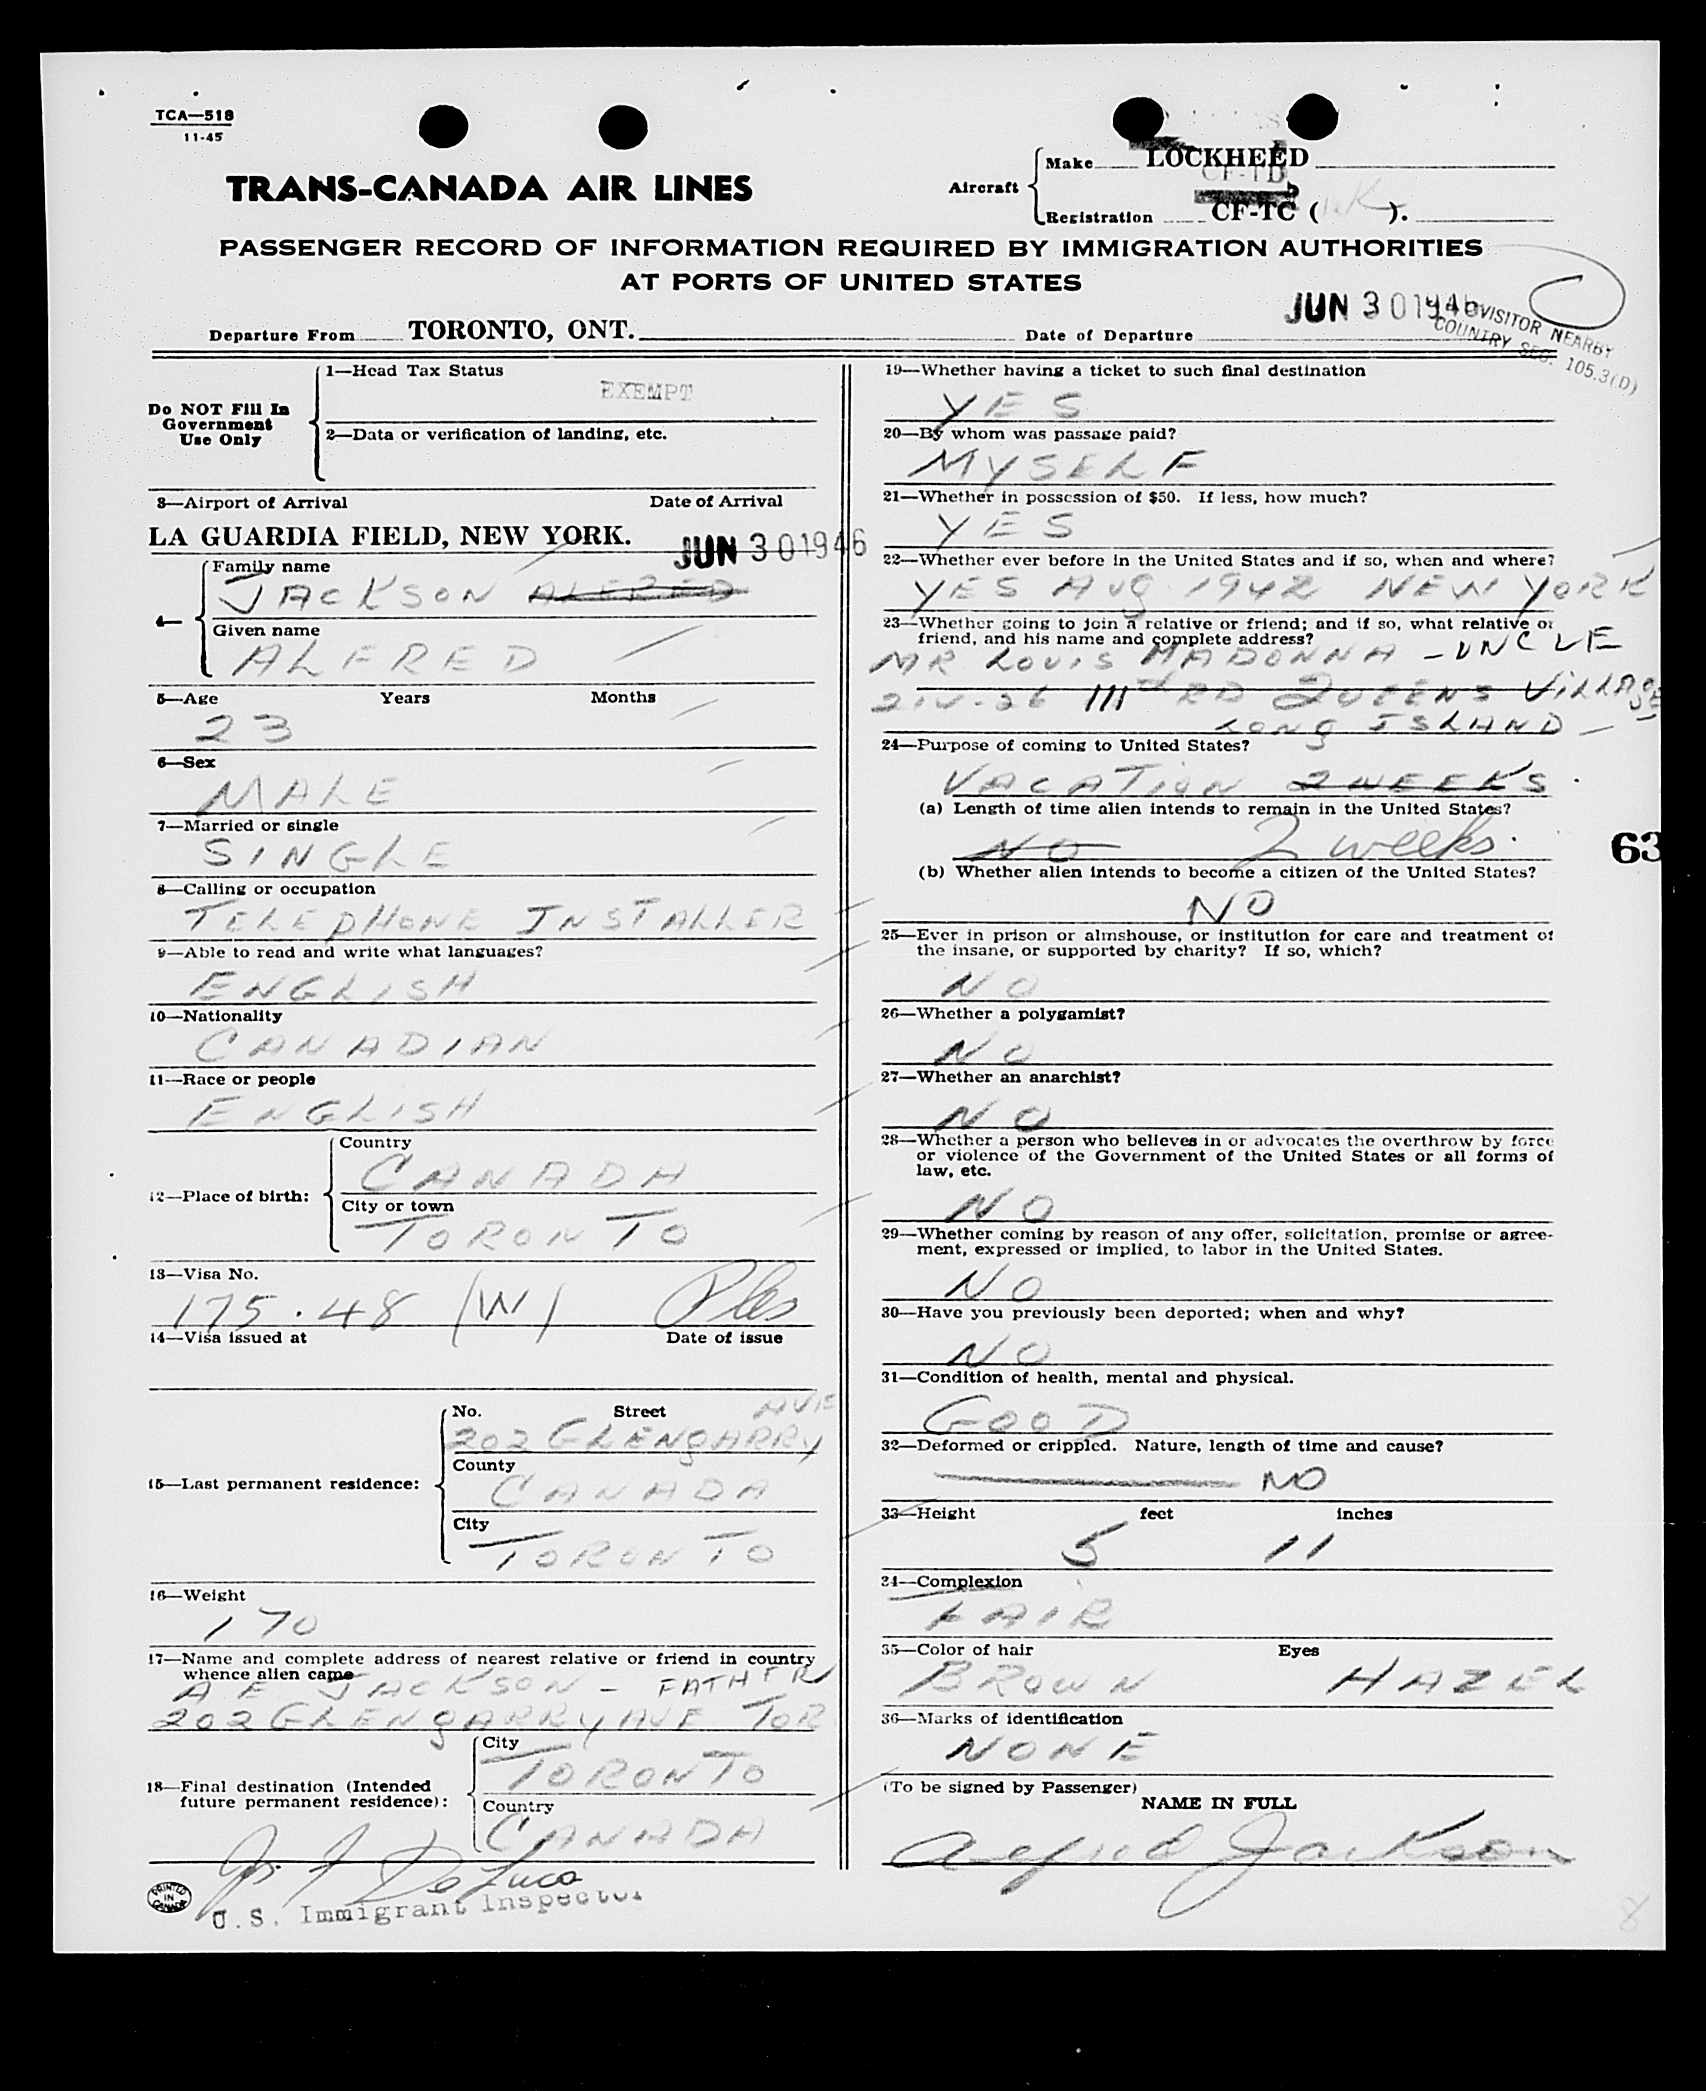 TCA—518
11-45
TRANS-CANADA AIR LINES
Aircraft
Make LOCKHEED
CF-TD
Registration CF-TC ( ).
PASSENGER RECORD OF INFORMATION REQUIRED BY IMMIGRATION AUTHORITIES
AT PORTS OF UNITED STATES
Departure From TORONTO, ONT.
Date of Departure JUN 30 1946
VISITOR NEARBY
COUNTRY SEC. 105.3(D)
Do NOT Fill In
Government
Use Only
1—Head Tax Status
EXEMPT
2—Data or verification of landing, etc.
3—Airport of Arrival Date of Arrival
LA GUARDIA FIELD, NEW YORK. JUN 30 1946
4—
Family name
JACKSON ALFRED
Given name
ALFRED
5—Age Years Months
23
6—Sex
MALE
7—Married or single
SINGLE
8—Calling or occupation
TELEPHONE INSTALLER
9—Able to read and write what languages?
ENGLISH
10—Nationality
CANADIAN
11—Race or people
ENGLISH
12—Place of birth:
Country
CANADA
City or town
TORONTO
13—Visa No.
175.48 (W)
14—Visa issued at Date of issue
15—Last permanent residence:
No. Street AVE
202 GLENGARRY
County
CANADA
City
TORONTO
16—Weight
170
17—Name and complete address of nearest relative or friend in country
whence alien came
A E JACKSON - FATHER
202 GLENGARRY AVE TOR
18—Final destination (Intended
future permanent residence):
City
TORONTO
Country
CANADA
De Luca
U.S. Immigrant Inspector
PRINTED
IN
CANADA
19—Whether having a ticket to such final destination
YES
20—By whom was passage paid?
MYSELF
21—Whether in possession of $50. If less, how much?
YES
22—Whether ever before in the United States and if so, when and where?
YES AUG 1942 NEW YORK
23—Whether going to join a relative or friend; and if so, what relative or
friend, and his name and complete address?
MR LOUIS MADONNA - UNCLE
111th RD QUEENS VILLAGE
LONG ISLAND
24—Purpose of coming to United States?
VACATION 2 WEEKS
(a) Length of time alien intends to remain in the United States?
NO 2 weeks.
(b) Whether alien intends to become a citizen of the United States?
NO
25—Ever in prison or almshouse, or institution for care and treatment of
the insane, or supported by charity? If so, which?
NO
26—Whether a polygamist?
NO
27—Whether an anarchist?
NO
28—Whether a person who believes in or advocates the overthrow by force
or violence of the Government of the United States or all forms of
law, etc.
NO
29—Whether coming by reason of any offer, solicitation, promise or agree-
ment, expressed or implied, to labor in the United States.
NO
30—Have you previously been deported; when and why?
NO
31—Condition of health, mental and physical.
GOOD
32—Deformed or crippled. Nature, length of time and cause?
NO
33—Height feet inches
5 11
34—Complexion
FAIR
35—Color of hair Eyes
BROWN HAZEL
36—Marks of identification
NONE
(To be signed by Passenger)
NAME IN FULL
Alfred Jackson
63
8